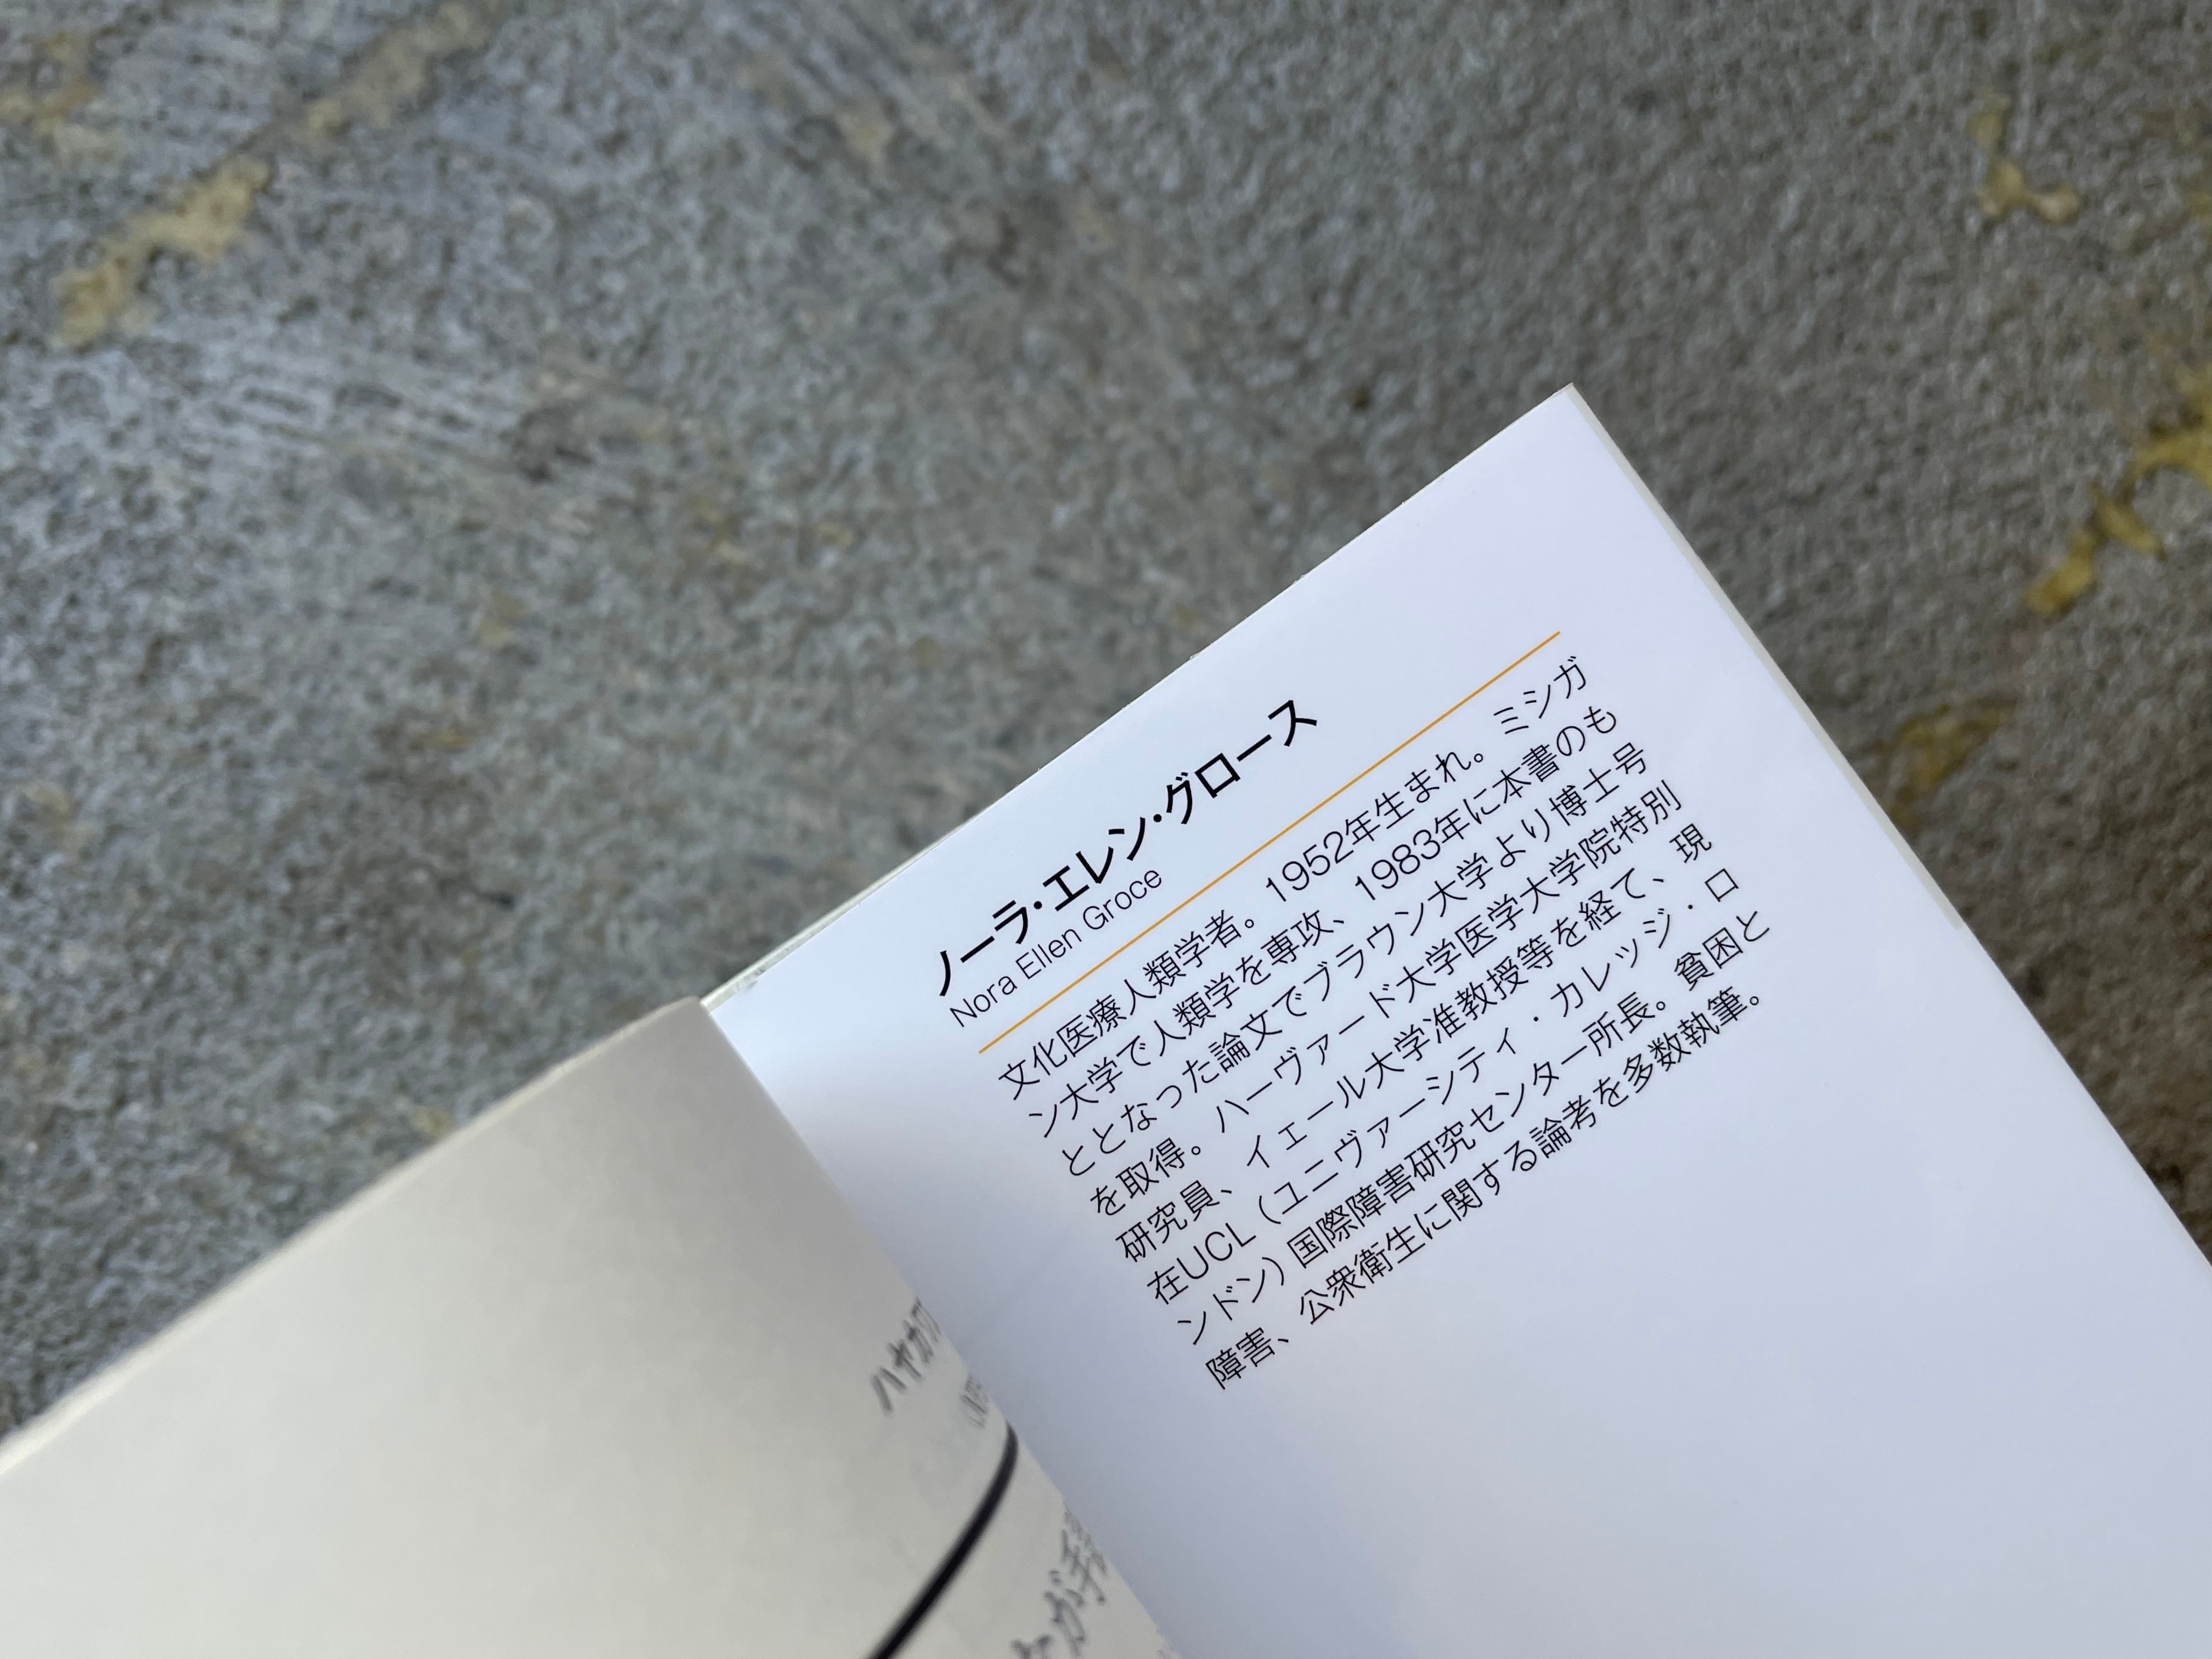 ノーラ・エレン・グロース
Nora Ellen Groce
文化医療人類学者。1952年生まれ。ミシガ
ン大学で人類学を専攻、1983年に本書のも
ととなった論文でブラウン大学より博士号
を取得。ハーヴァード大学医学大学院特別
研究員、イェール大学准教授等を経て、現
在UCL（ユニヴァーシティ・カレッジ・ロ
ンドン）国際障害研究センター所長。貧困と
障害、公衆衛生に関する論考を多数執筆。
ハヤカワ